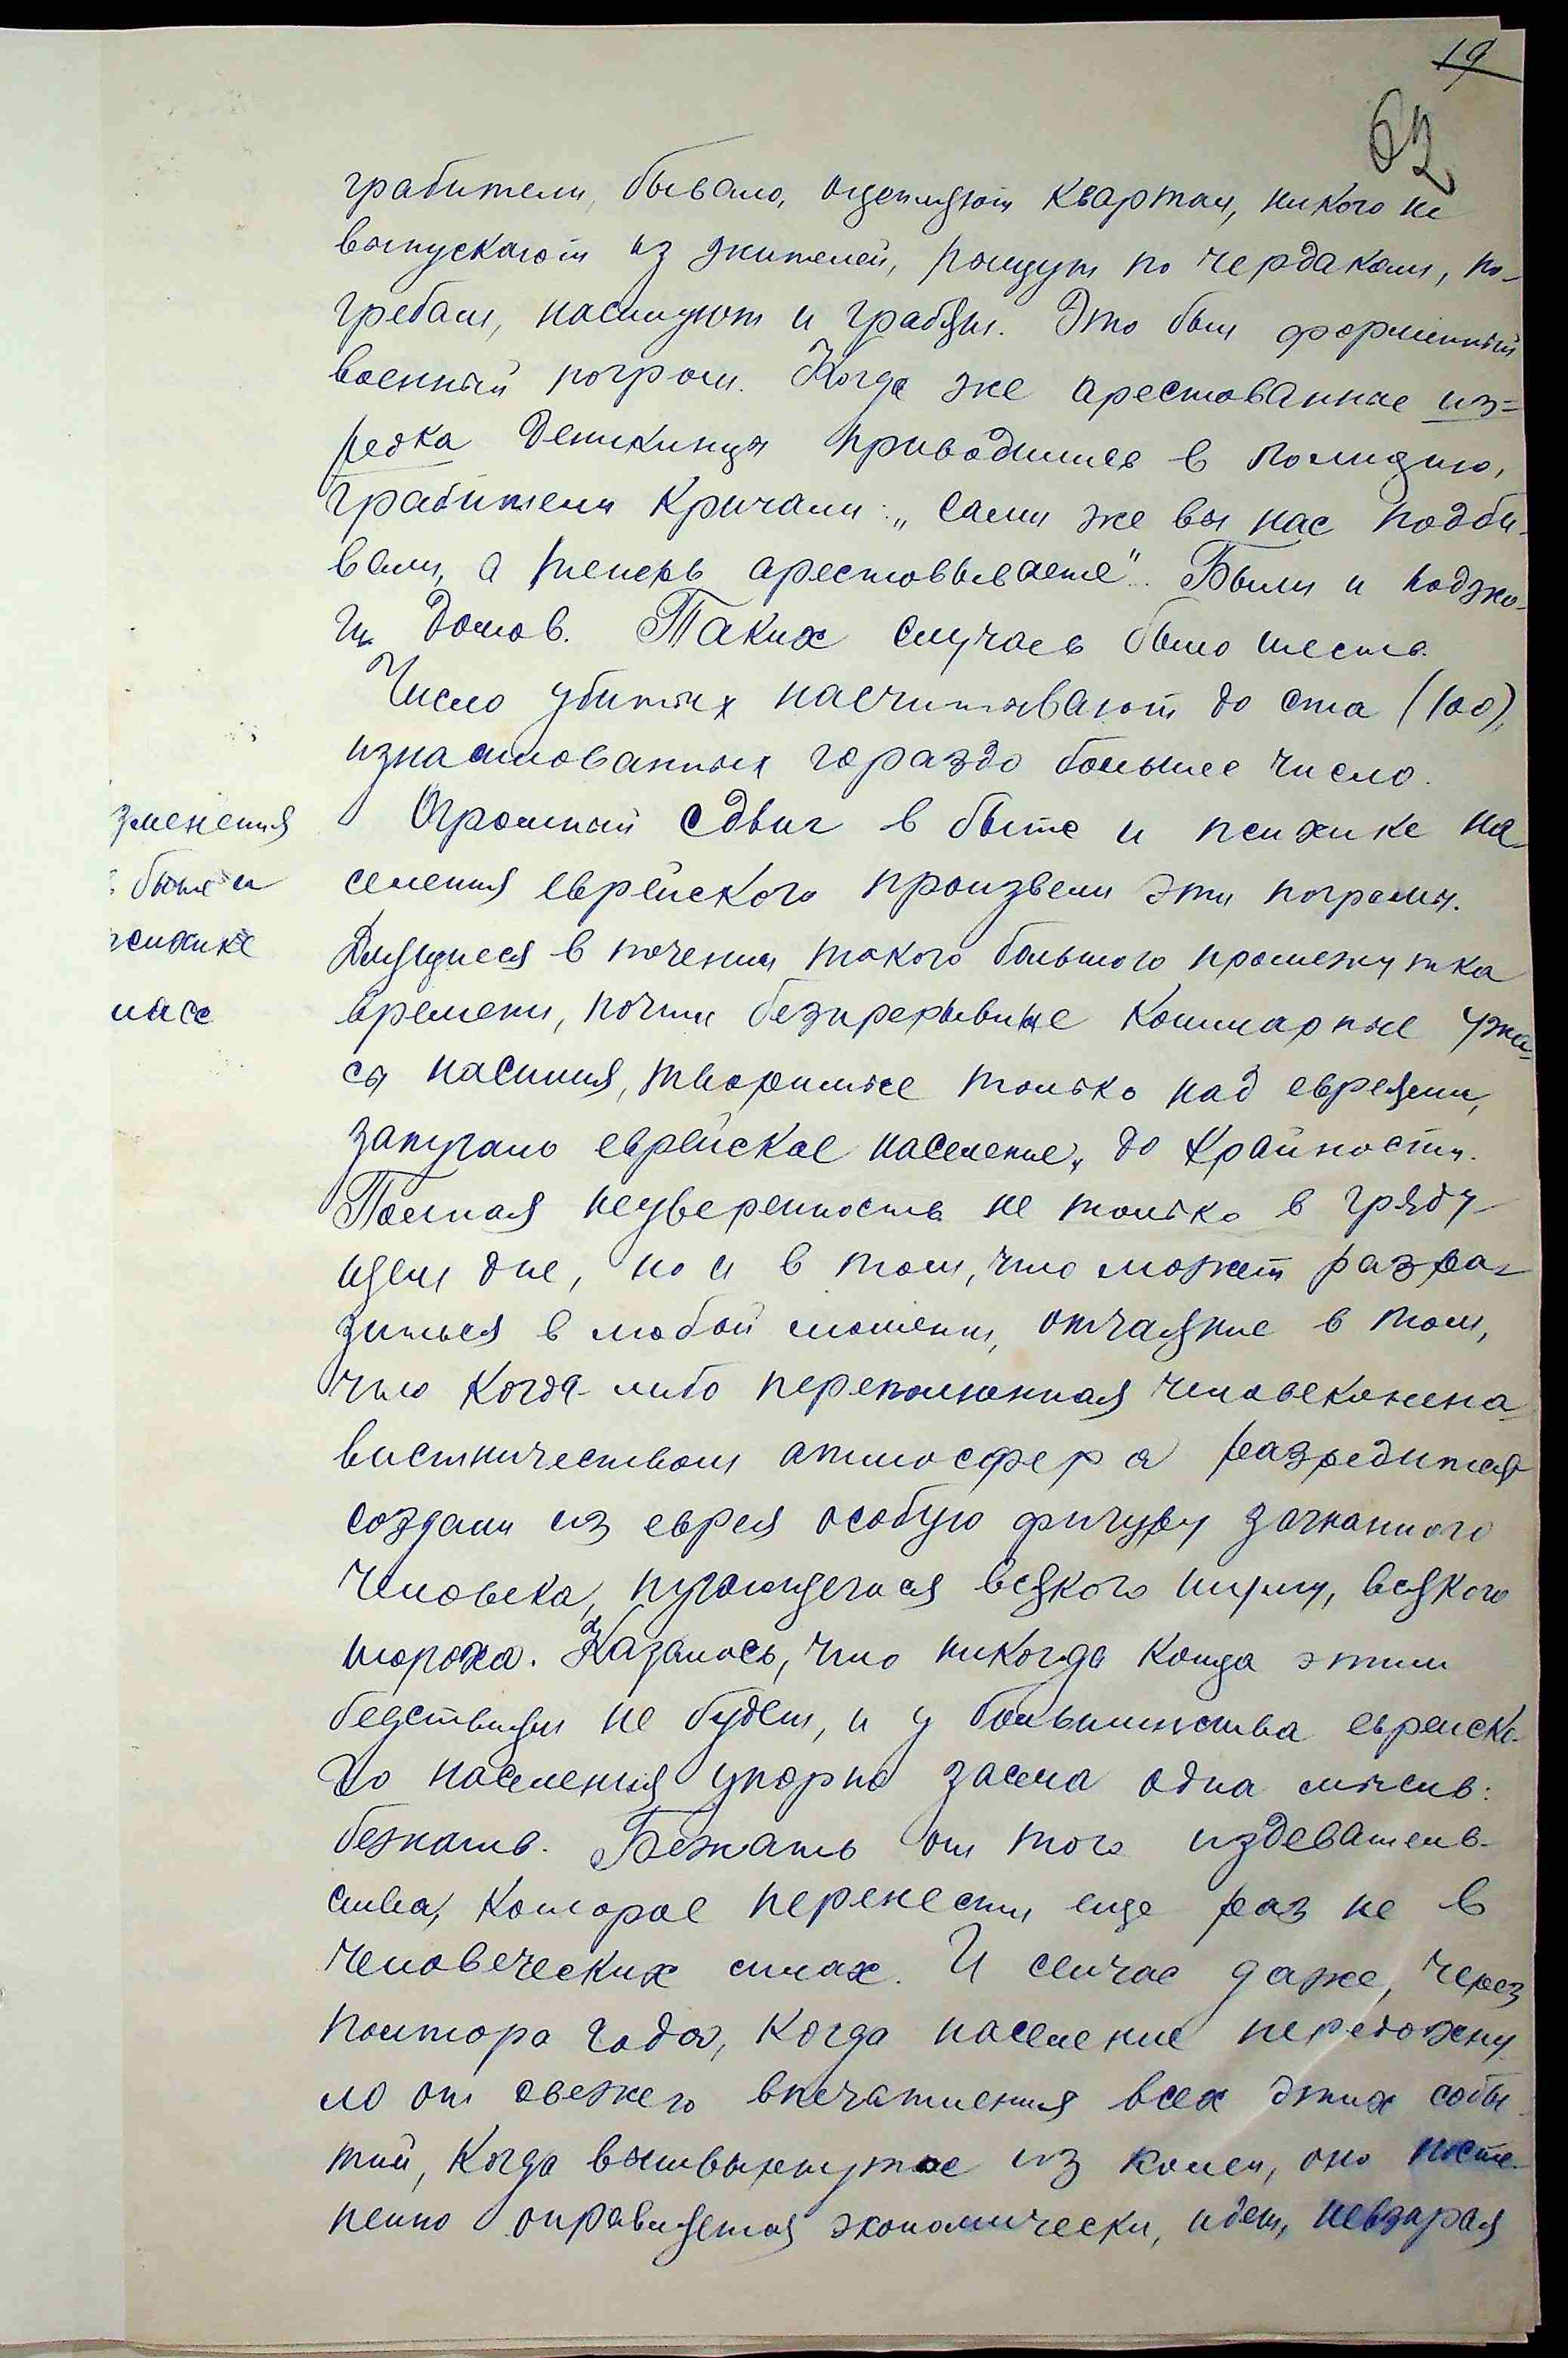 19
62
грабители, бывало, оцепляют квартал, никого не
выпускают из жителей, рыщут по чердакам, по-
гребам, насилуют и грабят. Это был форменный
военный погром. Когда же арестованные из=
редка деникинцы приводились в полицию,
грабители кричали: „сами же вы нас подби-
вали, а теперь арестовываете". Были и поджо-
ги домов. Таких случаев было шесть.
Число убитых насчитывают до ста (100),
изнасилованных гораздо большее число.
Огромный сдвиг в быте и психике на-
селения еврейского произвели эти погромы.
зменения
в быте и
психике
масс
Длящиеся в течении такого большого промежутка
времени, почти безпрерывные кошмарные ужа-
сы насилия, творимые только над евреями,
запугало еврейское население до крайности.
Полная неуверенность не только в гряду-
щем дне, но и в том, что может разра-
зиться в любой момент, отчаяние в том,
что когда-либо переполненная человеконена-
вистничеством атмосфера разредится
создали из еврея особую фигуру загнанного
человека, пугающегося всякого шума, всякого
шороха. Казалось, что никогда конца этим
бедствиям не будет, и у большинства еврейско-
го населения упорно засела одна мысль:
бежать. Бежать от того издеватель-
ства, которое перенести еще раз не в
человеческих силах. И сейчас даже, через
полтора года, когда население передохну-
ло от свежего впечатления всех этих собы-
тий, когда вышвырнутое из колеи, оно посте-
пенно оправляется экономически, идет, невзирая